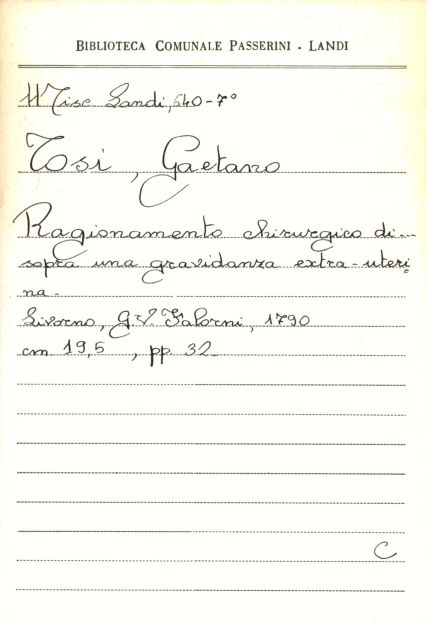 BIBLIOTECA COMUNALE PASSERINI - LANDI
Misc. Landi, 640-7°
Tosi, Gaetano
Ragionamento chirurgico di...
sopra una gravidanza extra-uteri=
na.
Livorno, G.V. Falorni, 1790
cm 19,5 , pp. 32
C